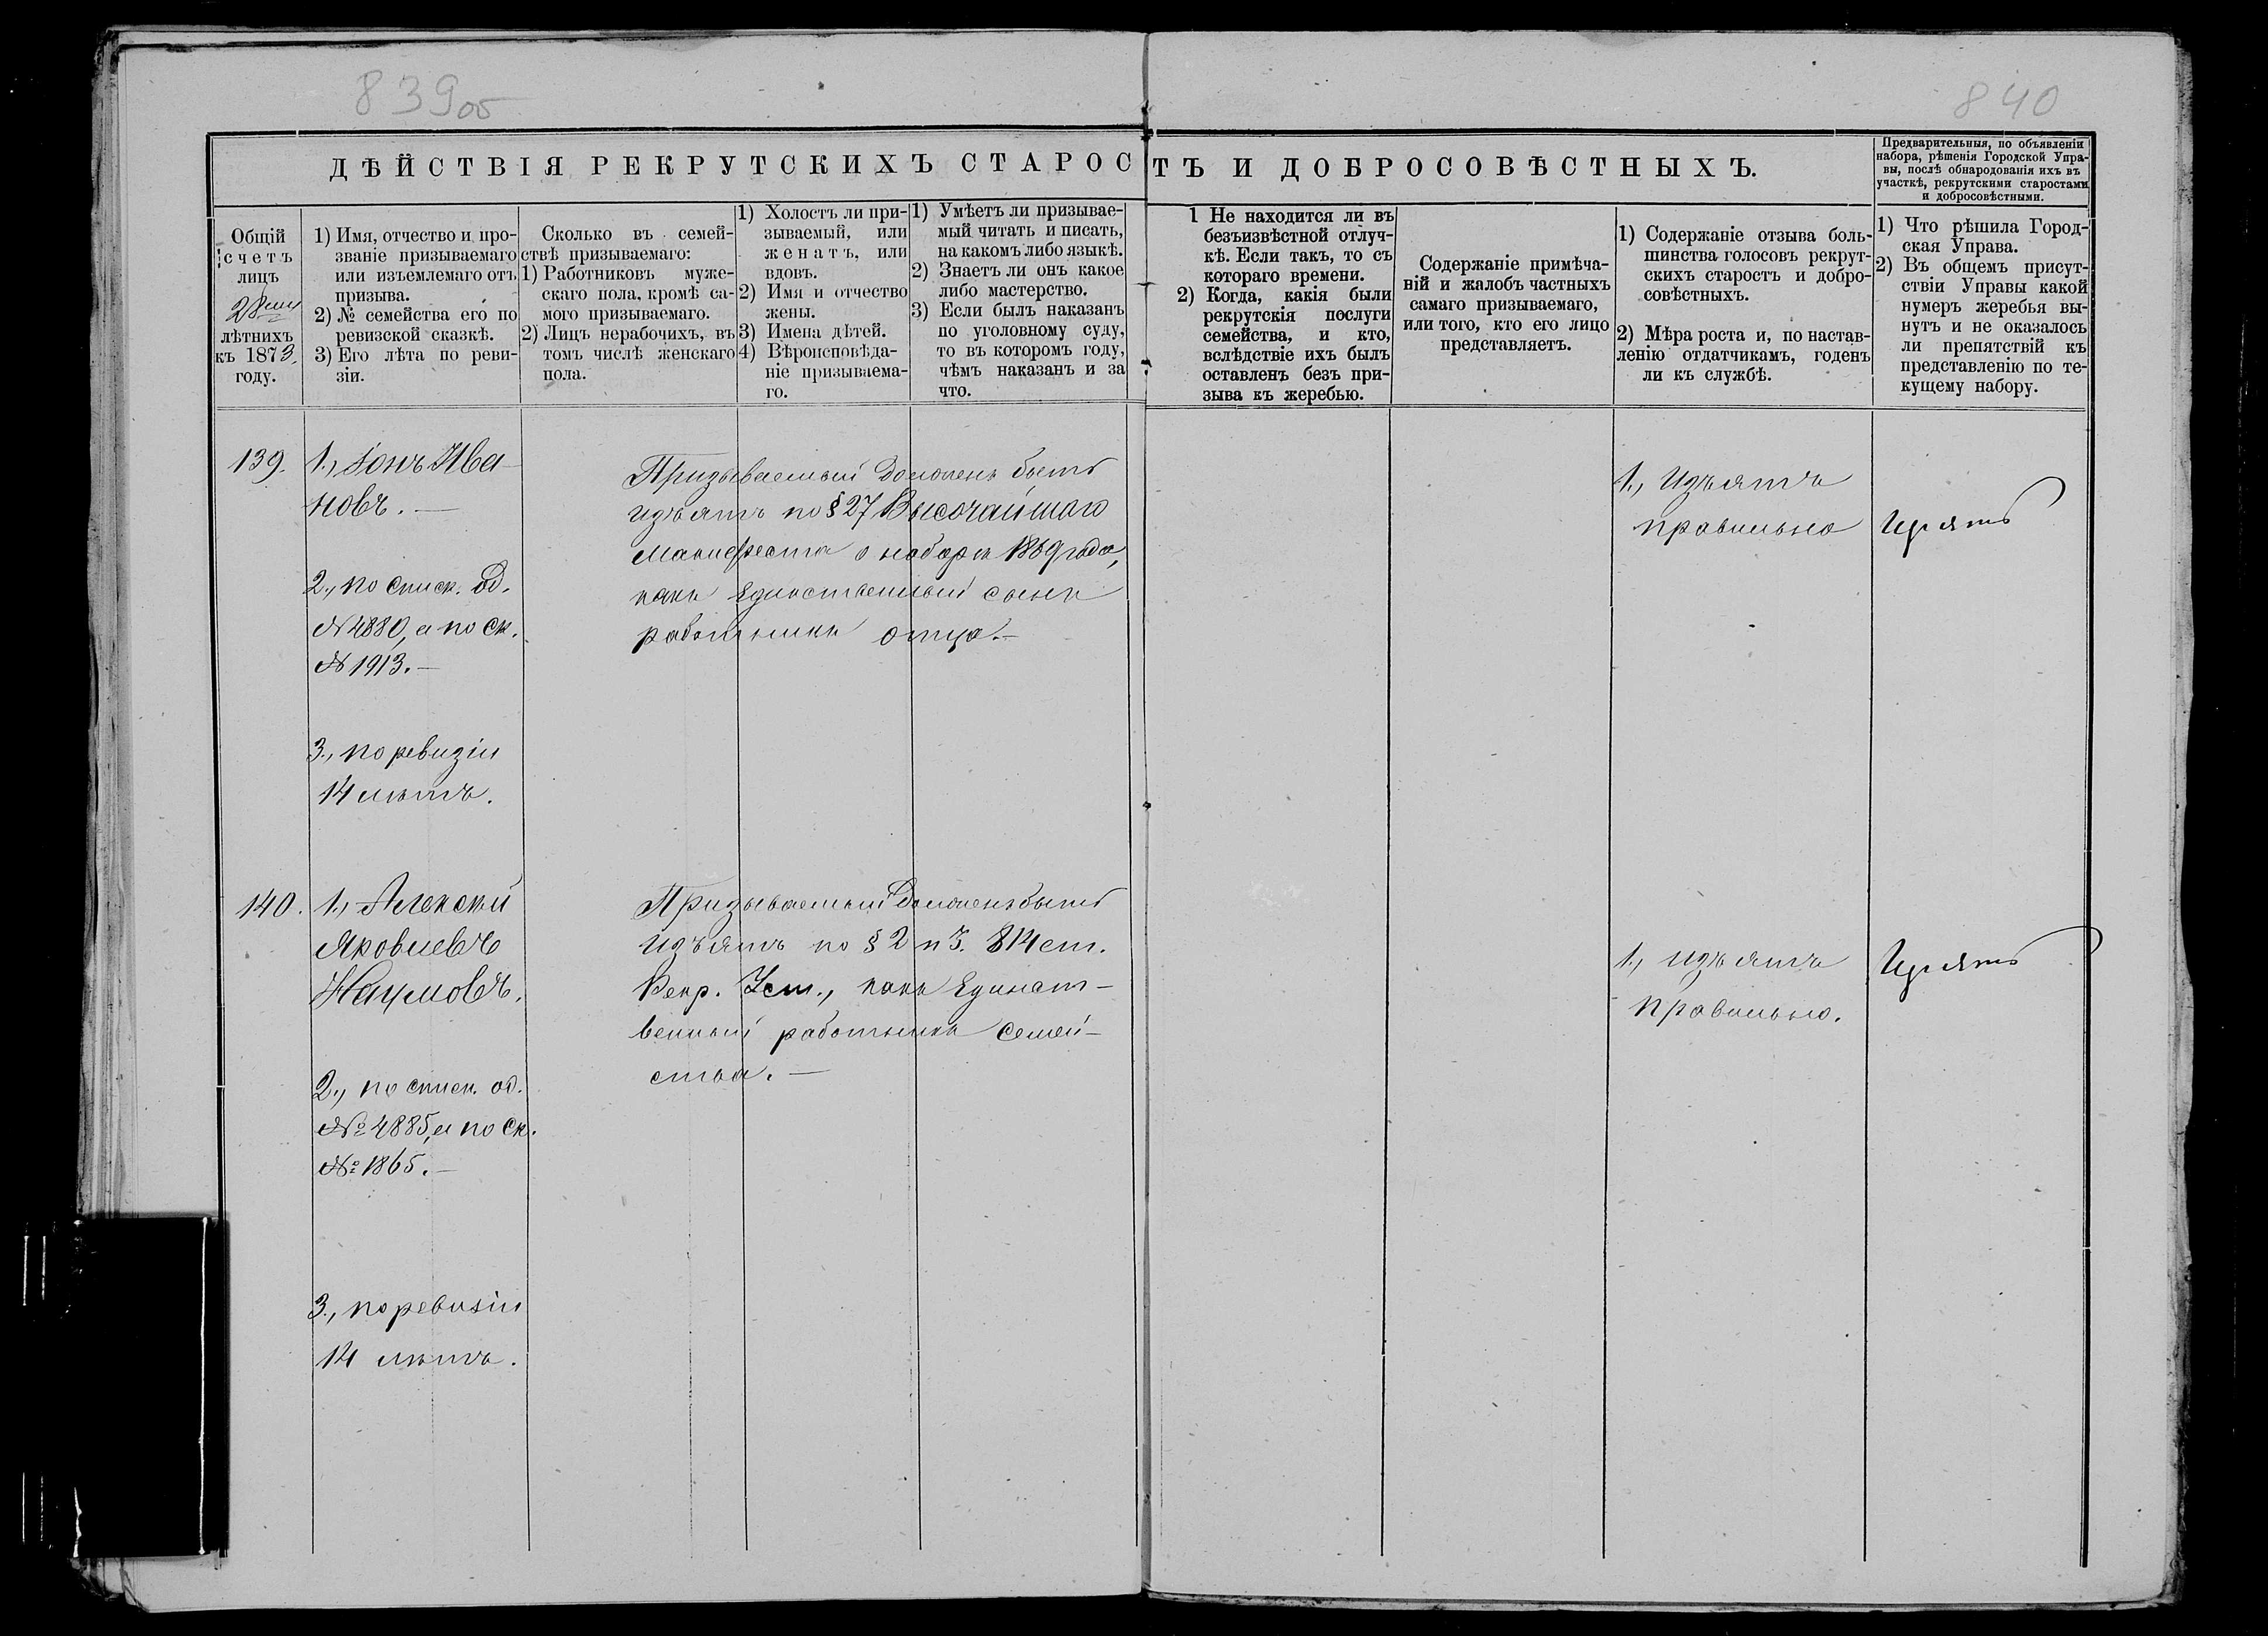 839об
840
ДѢЙСТВІЯ РЕКРУТСКИХЪ СТАРОСТЪ И ДОБРОСОВѢСТНЫХЪ.
Предварительныя, по объявленіи
набора, рѣшенія Городской Упра-
вы, послѣ обнародованія ихъ въ
участкѣ, рекрутскими старостами
и добросовѣстными.
Общій
счетъ
лицъ
28ми
лѣтнихъ
къ 1873
году.
1) Имя, отчество и про-
званіе призываемаго
или изъемлемаго отъ
призыва.
2) № семейства его по
ревизской сказкѣ.
3) Его лѣта по реви-
зіи.
Сколько въ семей-
ствѣ призываемаго:
1) Работниковъ муже-
скаго пола, кромѣ са-
мого призываемаго.
2) Лицъ нерабочихъ, въ
томъ числѣ женскаго
пола.
1) Холостъ ли при-
зываемый, или
женатъ, или
вдовъ.
2) Имя и отчество
жены.
3) Имена дѣтей.
4) Вѣроисповѣда-
ніе призываема-
го.
1) Умѣетъ ли призывае-
мый читать и писать,
на какомъ либо языкѣ.
2) Знаетъ ли онъ какое
либо мастерство.
3) Если былъ наказанъ
по уголовному суду,
то въ которомъ году,
чѣмъ наказанъ и за
что.
1 Не находится ли въ
безъизвѣстной отлуч-
кѣ. Если такъ, то съ
котораго времени.
2) Когда, какія были
рекрутскія послуги
семейства, и кто,
вслѣдствіе ихъ былъ
оставленъ безъ при-
зыва къ жеребью.
Содержаніе примѣча-
ній и жалобъ частныхъ
самаго призываемаго,
или того, кто его лицо
представляетъ.
1) Содержаніе отзыва боль-
шинства голосовъ рекрут-
скихъ старостъ и добро-
совѣстныхъ.
2) Мѣра роста и, по настав-
ленію отдатчикамъ, годенъ
ли къ службѣ.
1) Что рѣшила Город-
ская Управа.
2) Въ общемъ присут-
ствіи Управы какой
нумеръ жеребья вы-
нутъ и не оказалось
ли препятствій къ
представленію по те-
кущему набору.
139.
1., Іонъ Ива-
новъ. —
2., по списк. од.
№ 4880, а по ск.
№ 1913. —
3., по ревизіи
14 лѣтъ.
Призываемый долженъ быть
изъятъ по § 27 Высочайшаго
Манифеста о наборѣ 1869 года,
какъ единственный сынъ
работникъ отца. —
1., Изъятъ
правильно
Изъять
140.
1., Алексѣй
Яковлевъ
Наумовъ.
2., по списк. од.
№ 4885, а по ск.
№ 1865. —
3., по ревизіи
14 лѣтъ.
Призываемый долженъ быть
изъятъ по § 2 п 3. 814 ст.
Рекр. Уст., какъ единст-
венный работникъ семей-
ства. —
1., изъятъ
правильно.
Изъять